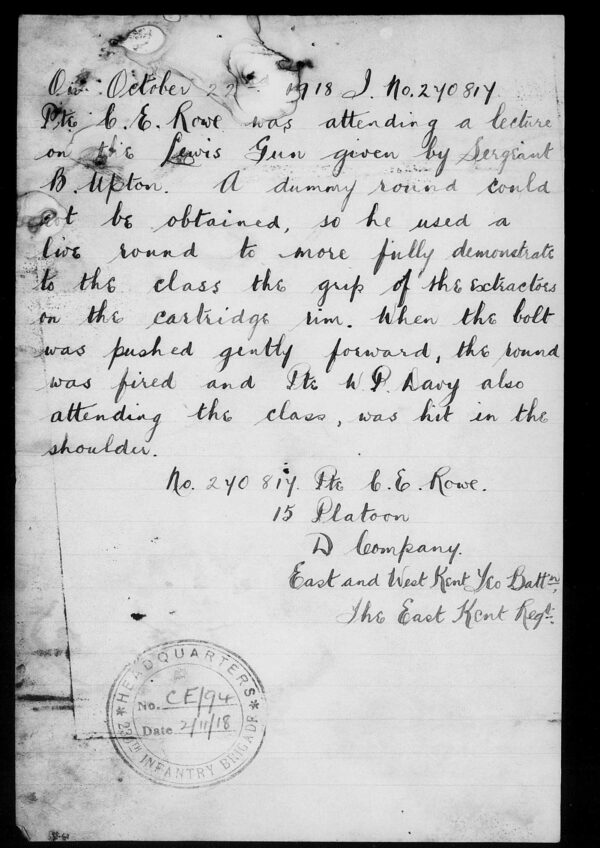 On October 22 1918 I. No. 270817.
Pte C. E. Rowe was attending a lecture
on the Lewis Gun given by Sergeant
B. Upton. A dummy round could
not be obtained, so he used a
live round to more fully demonstrate
to the class the grip of the extractors
on the cartridge rim. When the bolt
was pushed gently forward, the round
was fired and Pte W. P. Davy also
attending the class, was hit in the
shoulder.
No. 270817. Pte C. E. Rowe.
15 Platoon
D Company.
East and West Kent Yeo Battn,
The East Kent Regt.
*HEADQUARTERS*
No. CE/94
Date 2/11/18
230TH INFANTRY BRIGADE